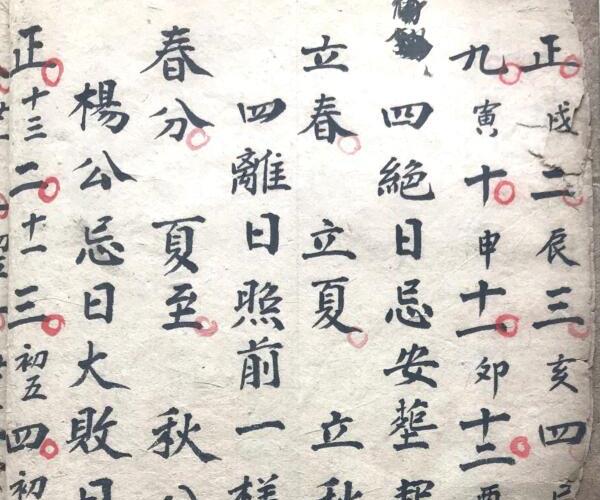 正戌二辰三亥四
九寅十申十一卯十二酉
四絕日忌安葬
立春 立夏 立秋
四離日照前一樣
春分 夏至 秋
楊公忌日大敗日
正十三二十一三初五四初